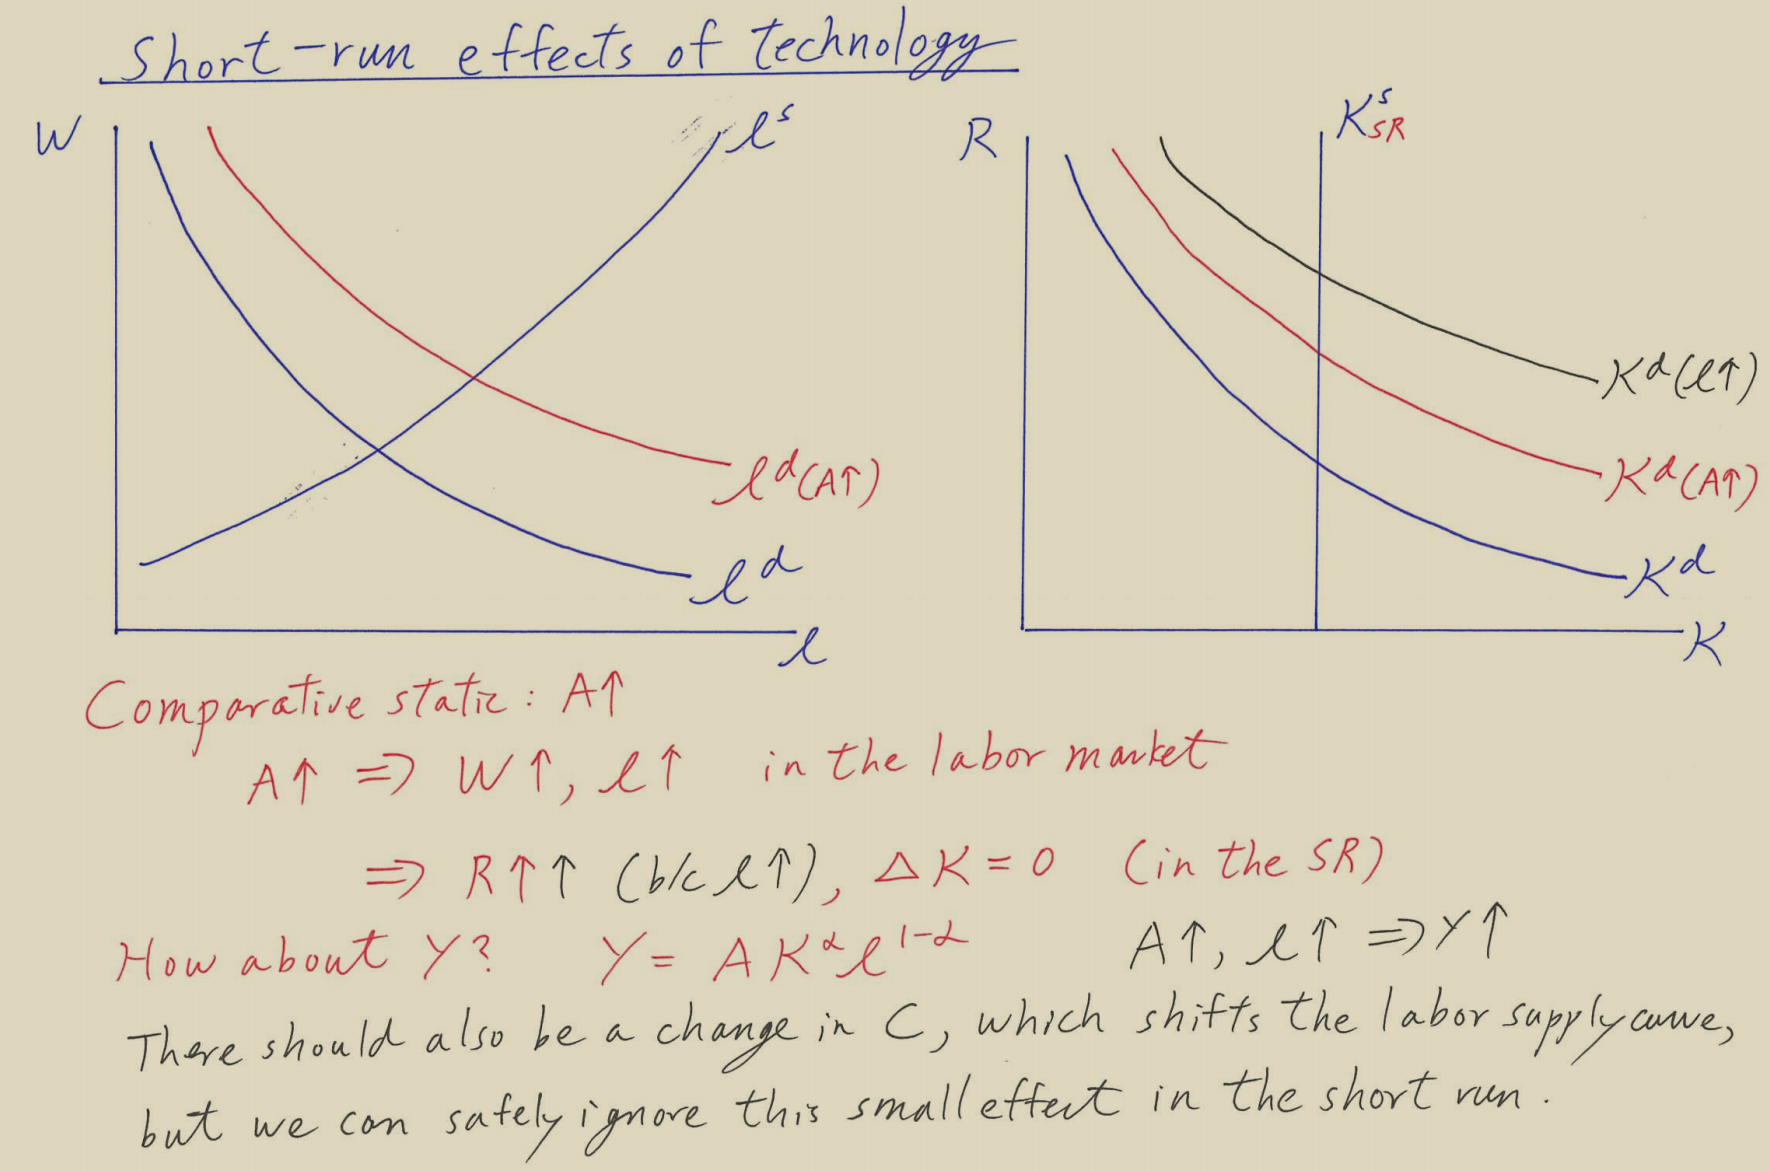 Short-run effects of technology
W
l^s
l^d(A↑)
l^d
l
R
K^s_SR
K^d(l↑)
K^d(A↑)
K^d
K
Comparative static: A↑
A↑ ⇒ W↑, l↑ in the labor market
⇒ R↑↑ (b/c l↑), ΔK = 0 (in the SR)
How about Y? Y = A K^α l^1-α A↑, l↑ ⇒ Y↑
There should also be a change in C, which shifts the labor supply curve,
but we can safely ignore this small effect in the short run.